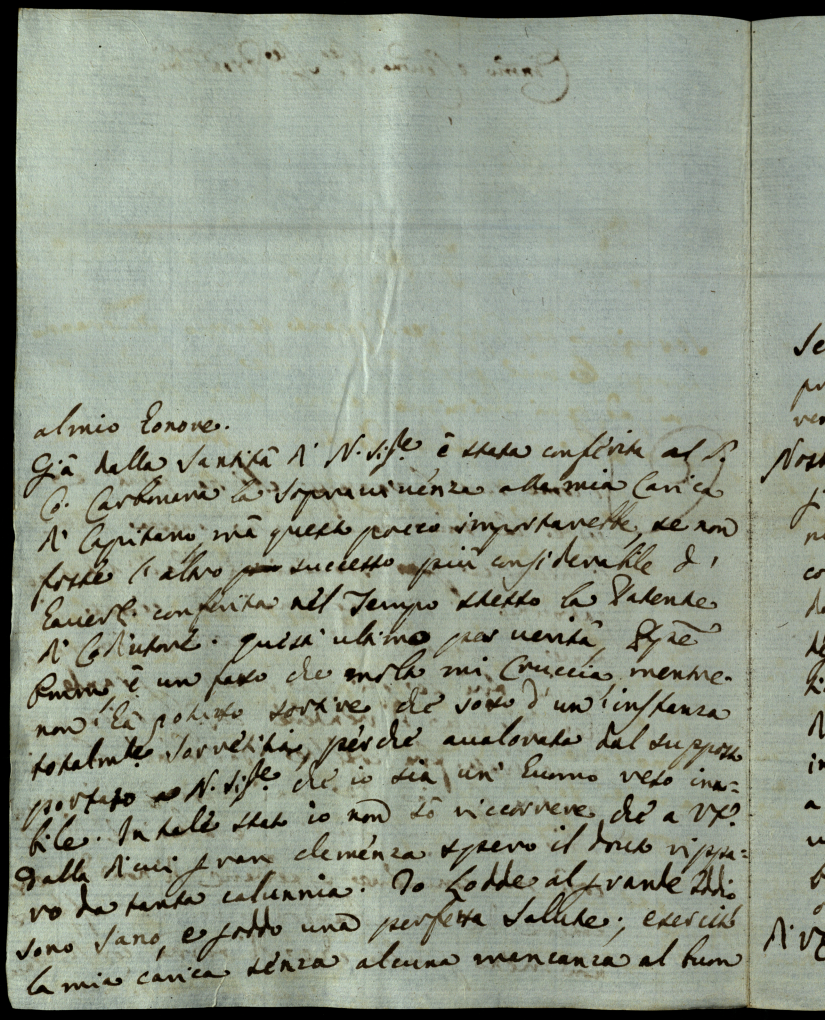 al mio Honore.
Già dalla Santità di N. Sig.re è stata conferita al S.r
Co. Carbonera la sopravivenza alla mia Carica
di Capitano, mà questo poco importarebbe, se non
fosse l'altro successo più considerabile d'
haverli conferita nel Tempo stesso la Patente
di Coadiutore. quest'ultimo per verità,
è un fato che molto mi Cruccia, mentre
non l'hà potuto sortire che sotto d'un'instanza
totalm.te sorretitia, perchè avalorata dal supposto
portato a N. Sig.re che io sia un huomo reso ina=
bile. In tale stato io non sò riccorrere che a VE.
dalla di cui gran clemenza spero il dovuto rippa=
ro da tanta calunnia. Io Lodde al grande Iddio
sono sano, e goddo una perfetta salute; esercito
la mia carica senza alcuna mancanza al buon
Se
pr
ver
Nost
co
in
a
di VE